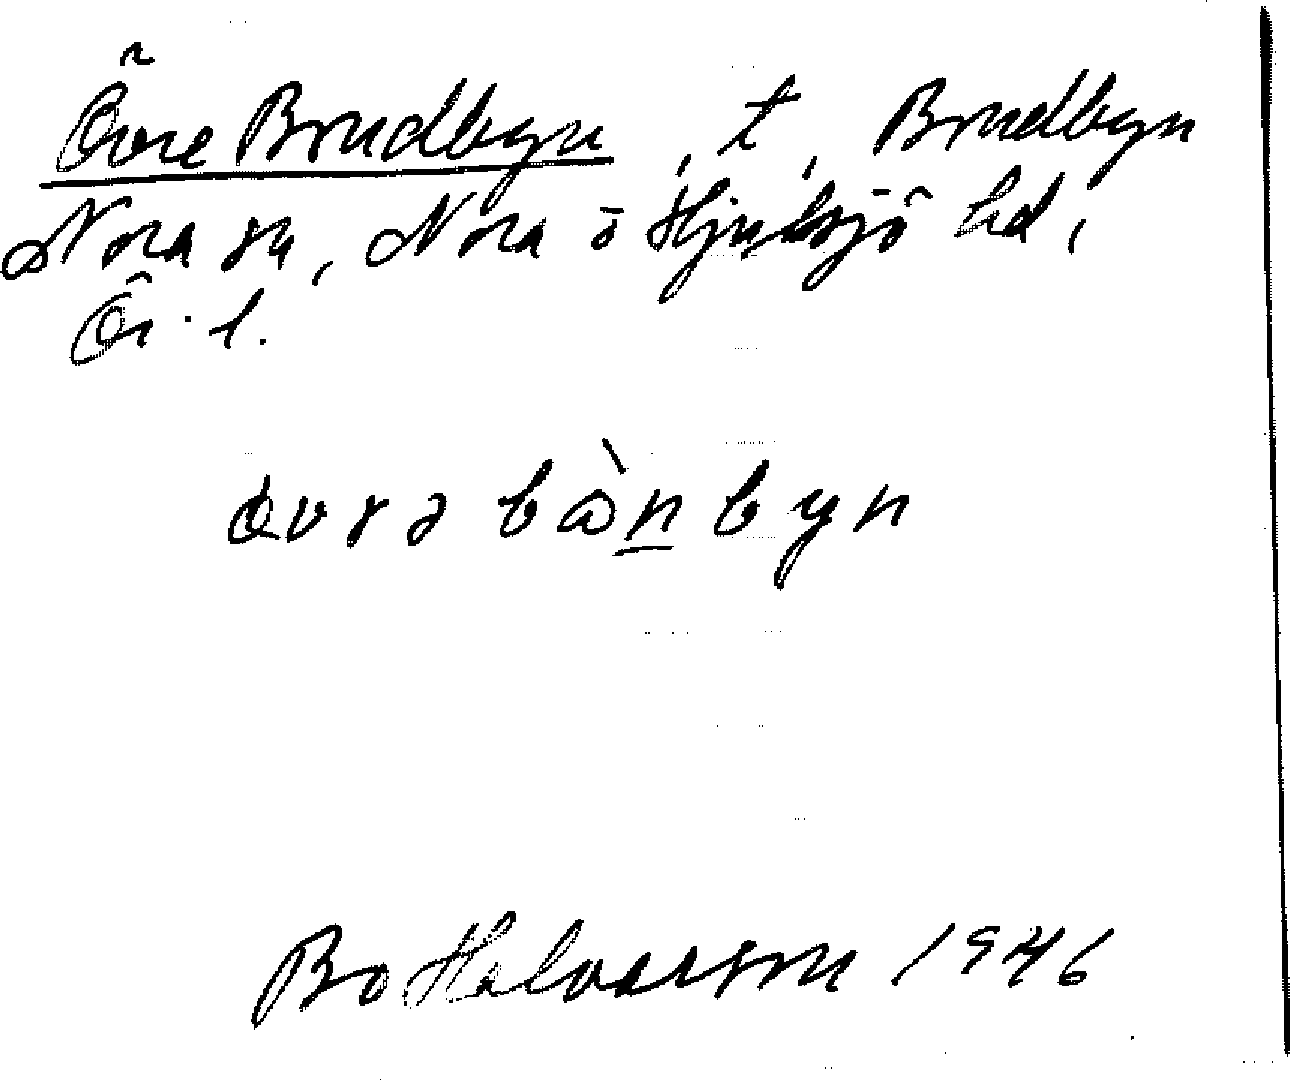 Övre Brudbyn, t, Brudbyn
Nora sn, Nora o Hjulsjö hd,
Ör. l.
bànbyn
Bo Halvarson 1946